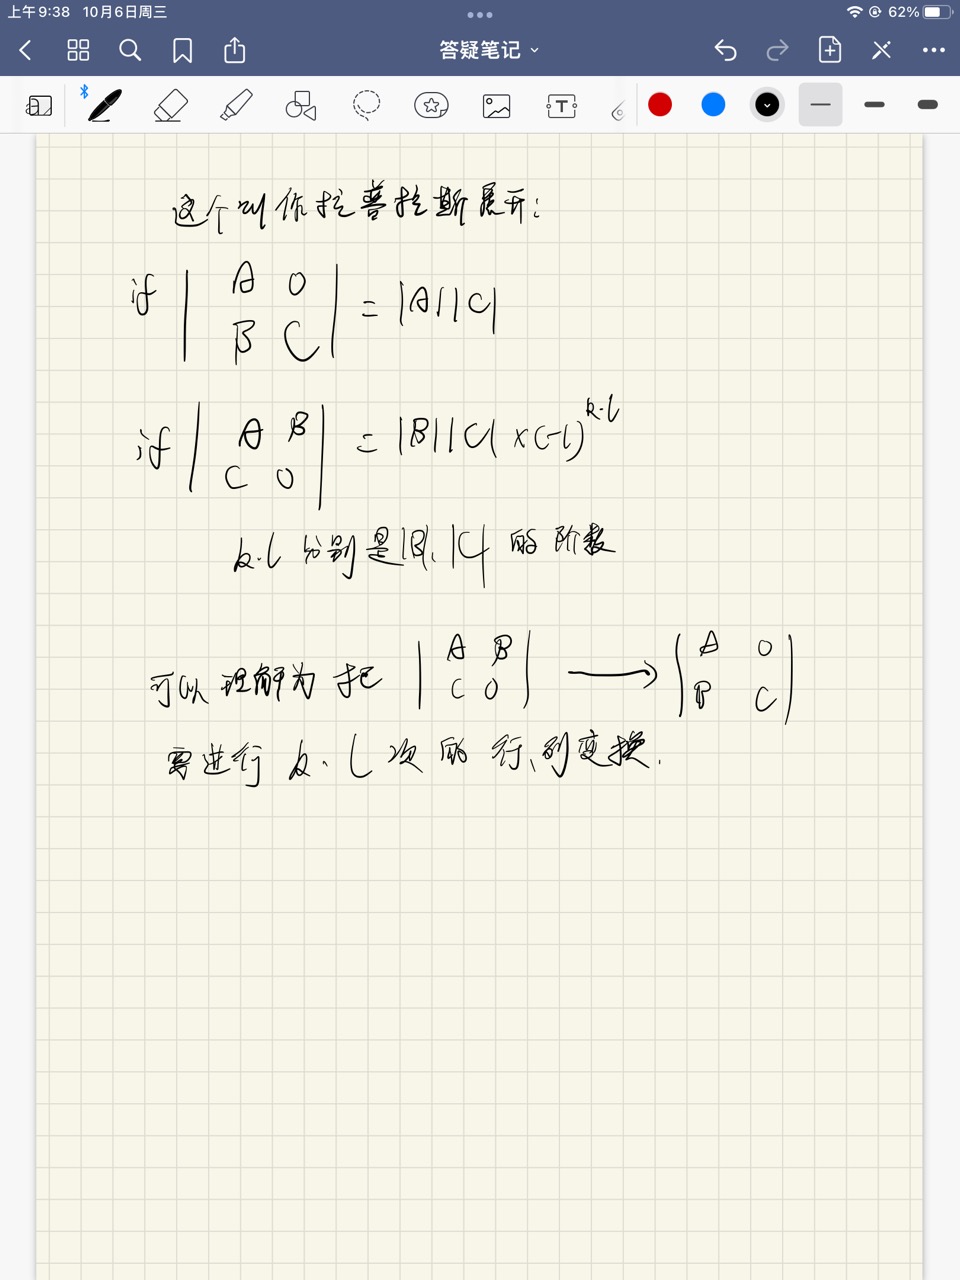 上午9:38 10月6日周三
62%
答疑笔记
T
这个叫作拉普拉斯展开:
if | A O | = |A||C|
| B C |
if | A B | = |B||C| ×(-1)^{k·l}
| C O |
k·l 分别是|B|、|C| 的阶数
可以理解为 把 | A B | ⟶ | A O |
| C O | | B C |
需进行 k·l 次的 行、列变换.